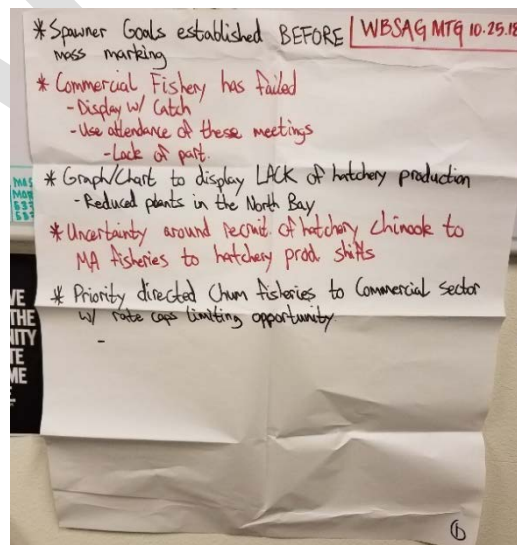 * Spawner Goals established BEFORE
WBSAG MTG 10.25.18
mass marking
* Commercial Fishery has failed
- Display w/ Catch
- Use attendance of these meetings
- Lack of part.
* Graph/Chart to display LACK of hatchery production
- Reduced plants in the North Bay
* Uncertainty around recruit. of hatchery chinook to
MA fisheries to hatchery prod shifts
* Priority directed Chum fisheries to Commercial sector
w/ rate caps limiting opportunity.
-
MAS
MAR
VE
THE
NITY
TE
ME
1